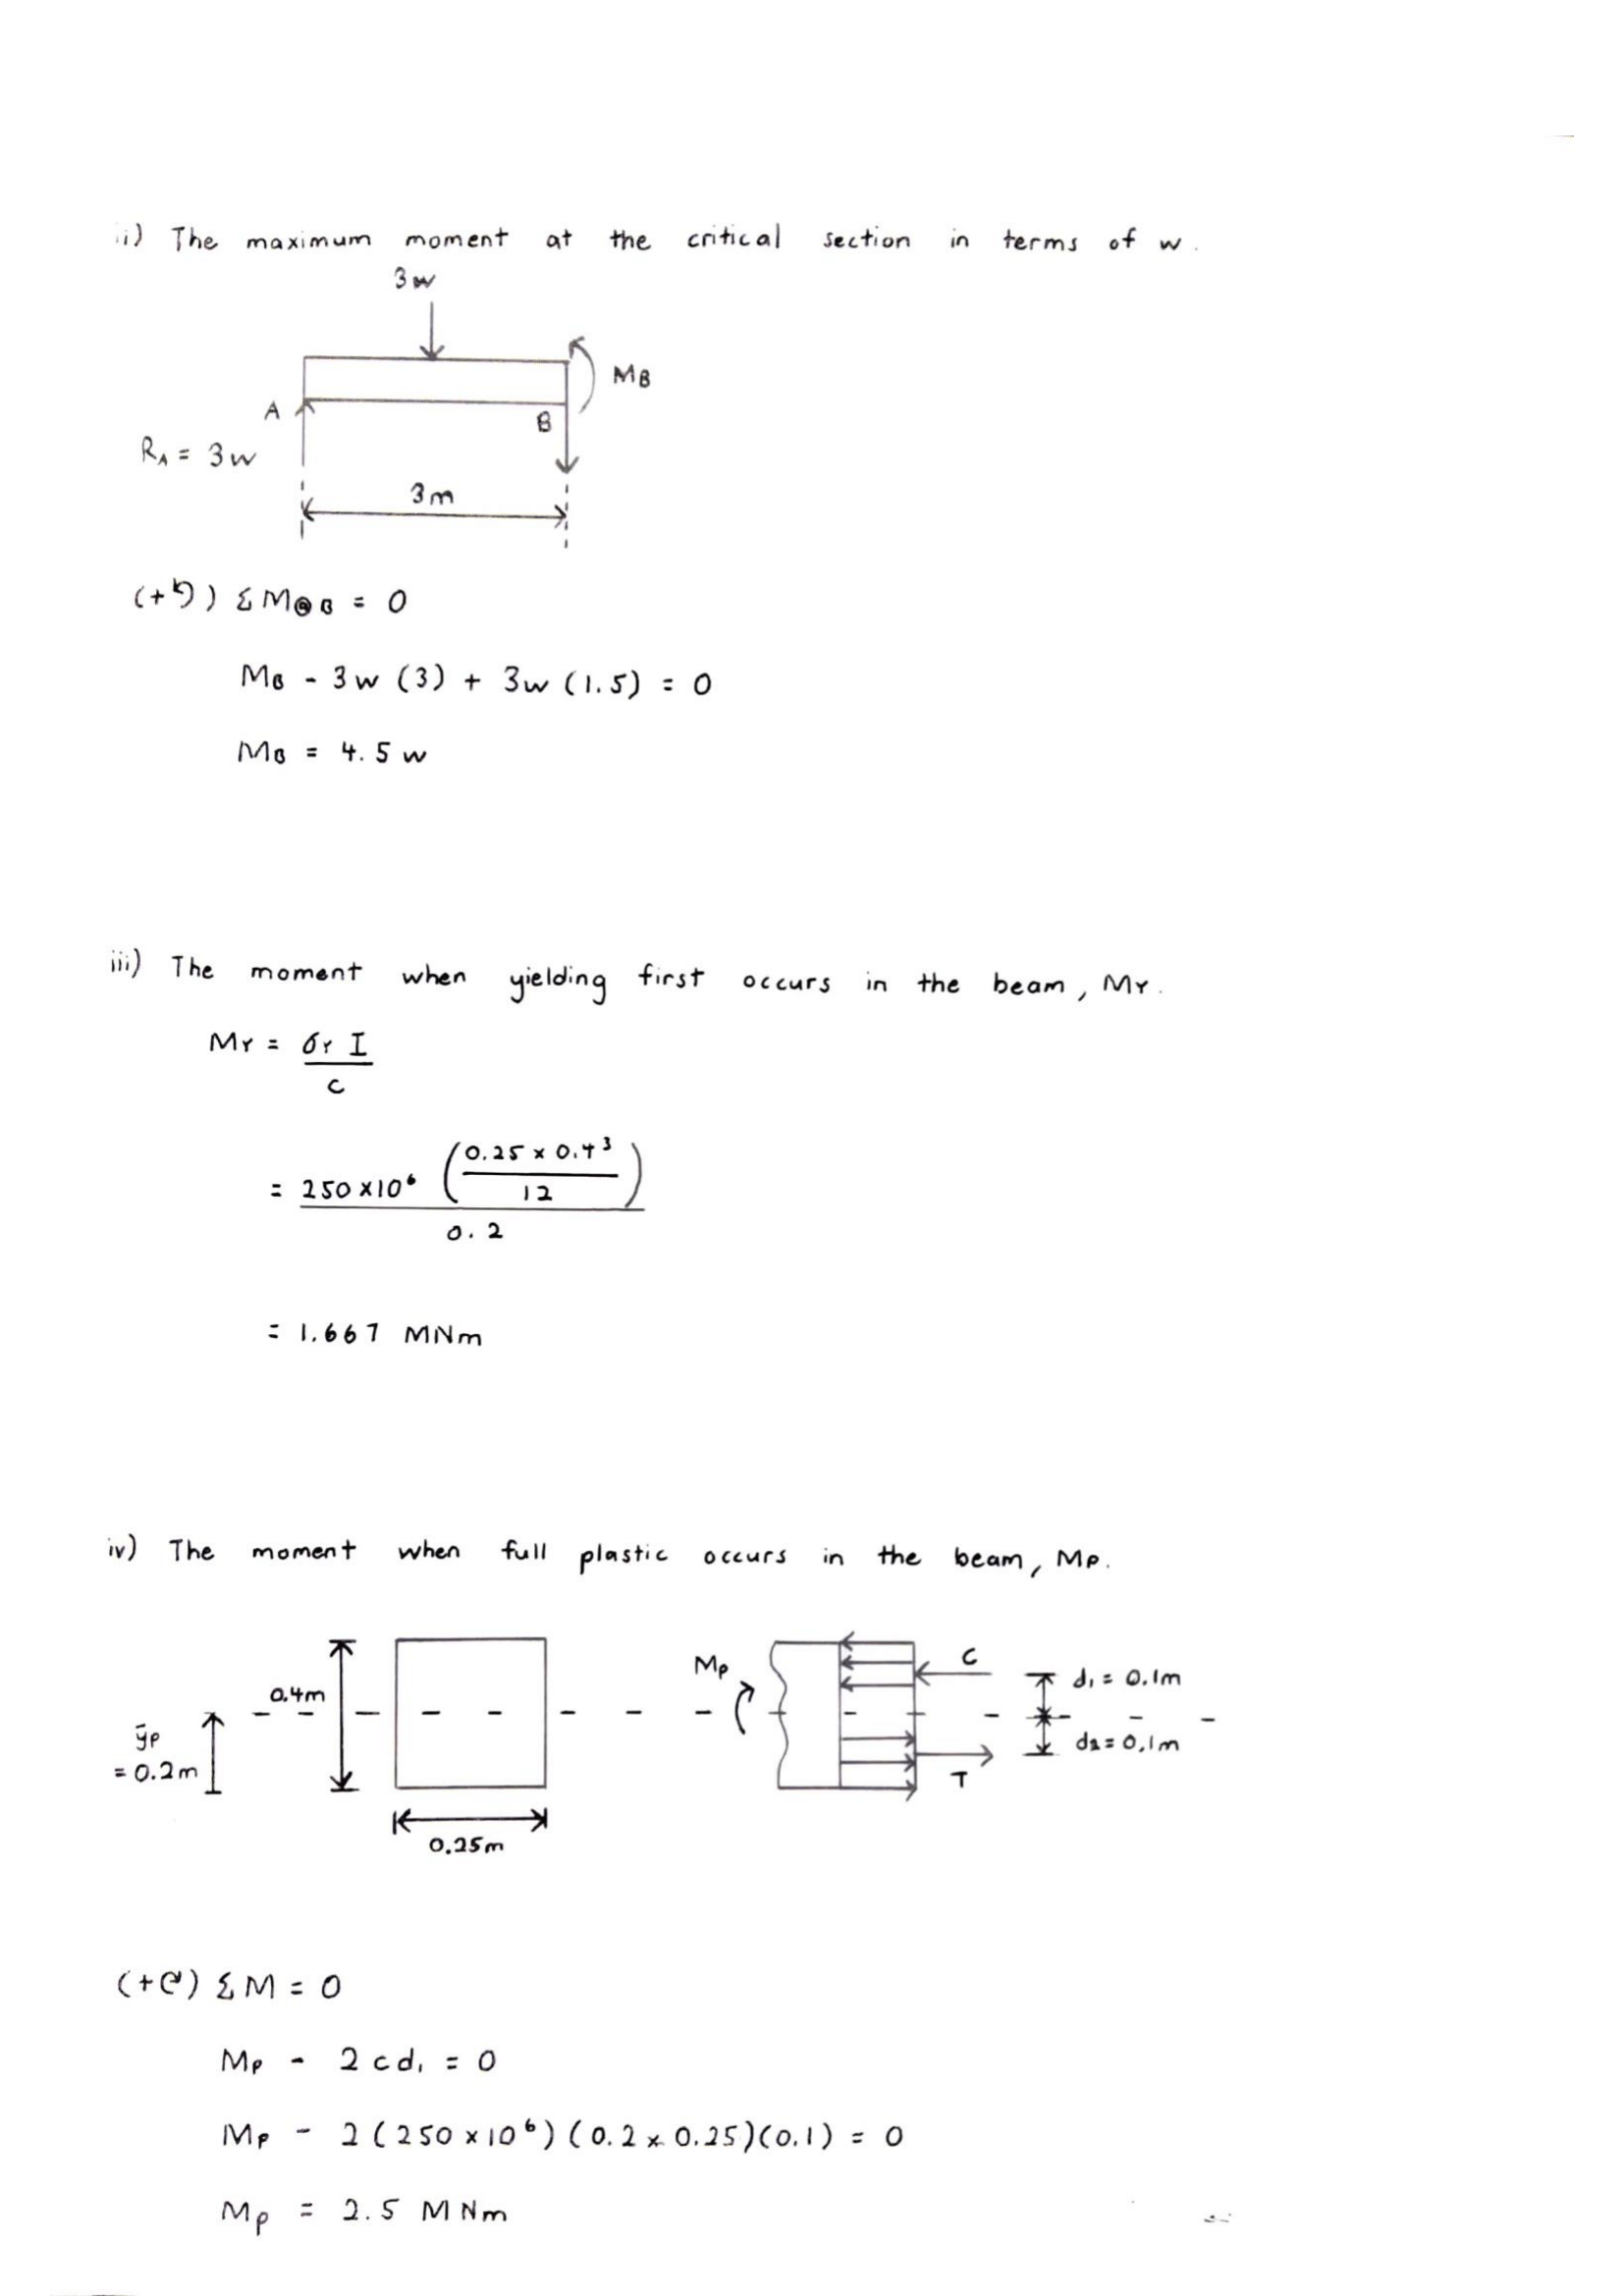 ii) The maximum moment at the critical section in terms of w.
3w
MB
A
B
RA = 3w
3m
(+↺) ΣM@B = 0
MB - 3w (3) + 3w (1.5) = 0
MB = 4.5 w
iii) The moment when yielding first occurs in the beam, MY.
MY = σY I
c
= 250 x10⁶ (0.25 x 0.4³
12)
0.2
= 1.667 MNm
iv) The moment when full plastic occurs in the beam, MP.
MP
C
d₁ = 0.1m
0.4m
ȳP
= 0.2m
d₂ = 0.1m
T
0.25m
(+↻) ΣM = 0
MP - 2cd₁ = 0
MP - 2 (250 x 10⁶) (0.2 x 0.25)(0.1) = 0
MP = 2.5 MNm